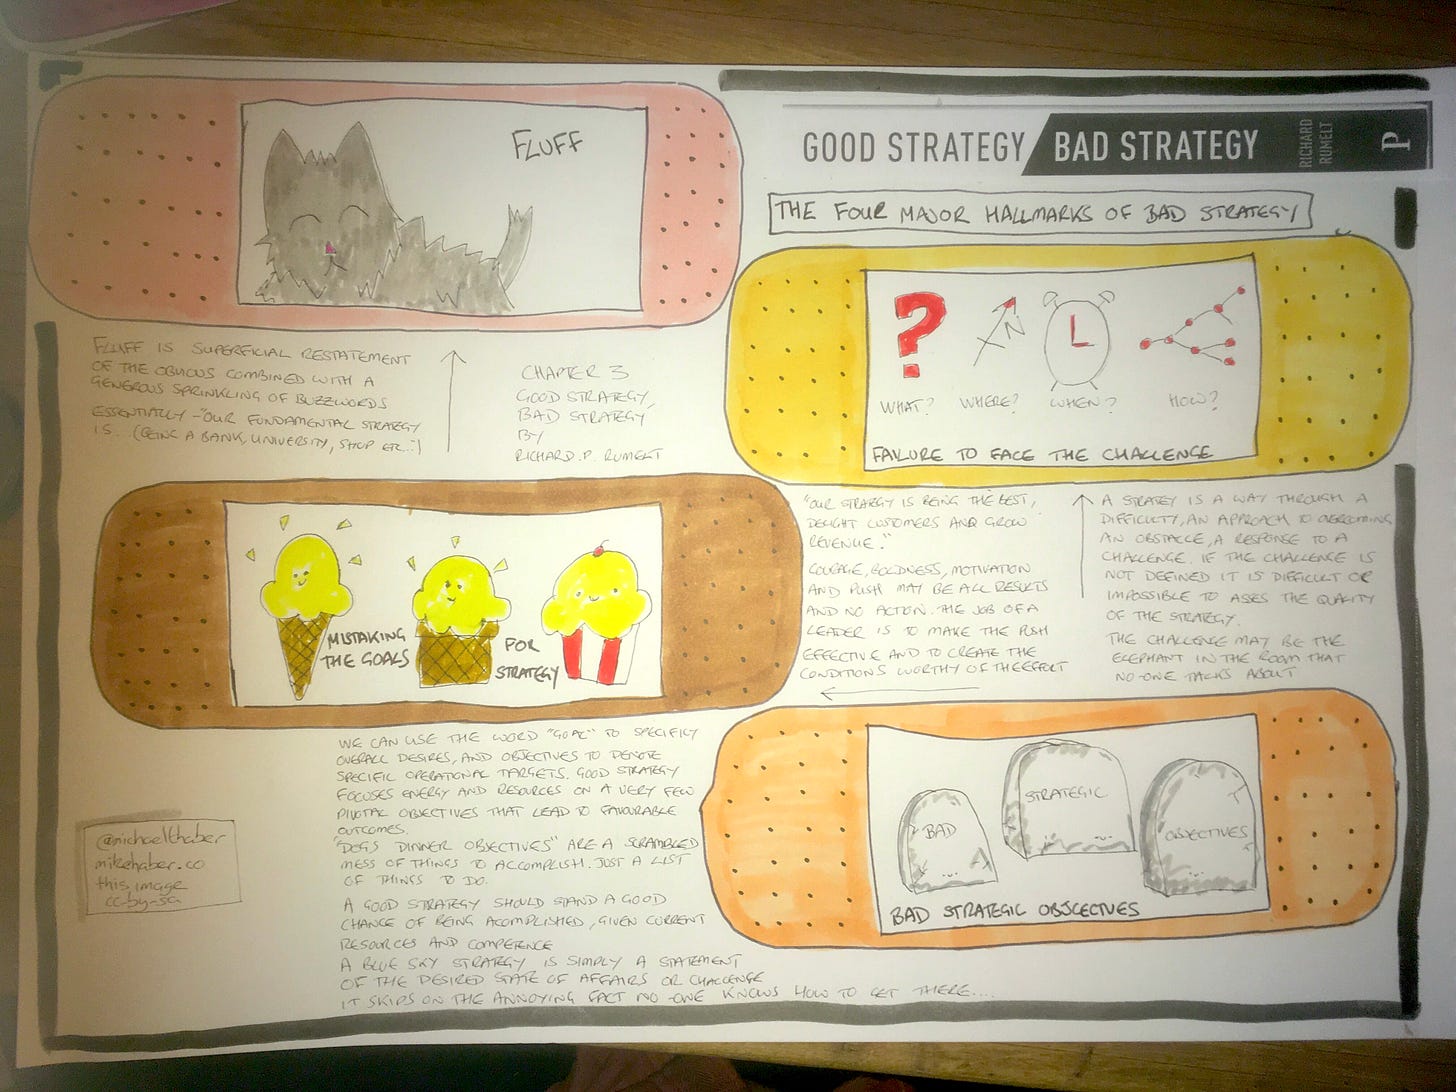 FLUFF
GOOD STRATEGY BAD STRATEGY
RICHARD
RUMELT
P
THE FOUR MAJOR HALLMARKS OF BAD STRATEGY
WHAT? WHERE? WHEN? HOW?
FAILURE TO FACE THE CHALLENGE
FLUFF IS SUPERFICIAL RESTATEMENT
OF THE OBVIOUS COMBINED WITH A
GENEROUS SPRINKLING OF BUZZWORDS
ESSENTIALLY - "OUR FUNDAMENTAL STRATEGY
IS... (BEING A BANK, UNIVERSITY, SHOP ETC...")
CHAPTER 3
GOOD STRATEGY,
BAD STRATEGY
BY
RICHARD. P. RUMELT
MISTAKING
THE GOALS
FOR
STRATEGY
"OUR STRATEGY IS BEING THE BEST,
DELIGHT CUSTOMERS AND GROW
REVENUE."
COURAGE, BOLDNESS, MOTIVATION
AND PUSH MAY BE ALL RESULTS
AND NO ACTION. THE JOB OF A
LEADER IS TO MAKE THE PUSH
EFFECTIVE AND TO CREATE THE
CONDITIONS WORTHY OF THE EFFORT
A STRATEY IS A WAY THROUGH A
DIFFICULTY, AN APPROACH TO OVERCOMING
AN OBSTACLE, A RESPONSE TO A
CHALLENGE. IF THE CHALLENGE IS
NOT DEFINED IT IS DIFFICULT OR
IMPOSSIBLE TO ASSES THE QUALITY
OF THE STRATEGY.
THE CHALLENGE MAY BE THE
ELEPHANT IN THE ROOM THAT
NO-ONE TALKS ABOUT
WE CAN USE THE WORD "GOAL" TO SPECIFIY
OVERALL DESIRES, AND OBJECTIVES TO DENOTE
SPECIFIC OPERATIONAL TARGETS. GOOD STRATEGY
FOCUSES ENERGY AND RESOURCES ON A VERY FEW
PIVOTAL OBJECTIVES THAT LEAD TO FAVOURABLE
OUTCOMES.
"DOG'S DINNER OBJECTIVES" ARE A SCRAMBLED
MESS OF THINGS TO ACCOMPLISH. JUST A LIST
OF THINGS TO DO.
A GOOD STRATEGY SHOULD STAND A GOOD
CHANCE OF BEING ACOMPLISHED, GIVEN CURRENT
RESOURCES AND COMPETENCE
A BLUE SKY STRATEGY IS SIMPLY A STATEMENT
OF THE DESIRED STATE OF AFFAIRS OR CHALLENGE
IT SKIPS ON THE ANNOYING FACT NO-ONE KNOWS HOW TO GET THERE....
BAD
STRATEGIC
OBJECTIVES
BAD STRATEGIC OBJECTIVES
@michaelthaber
mikehaber.co
this image
cc-by-sa